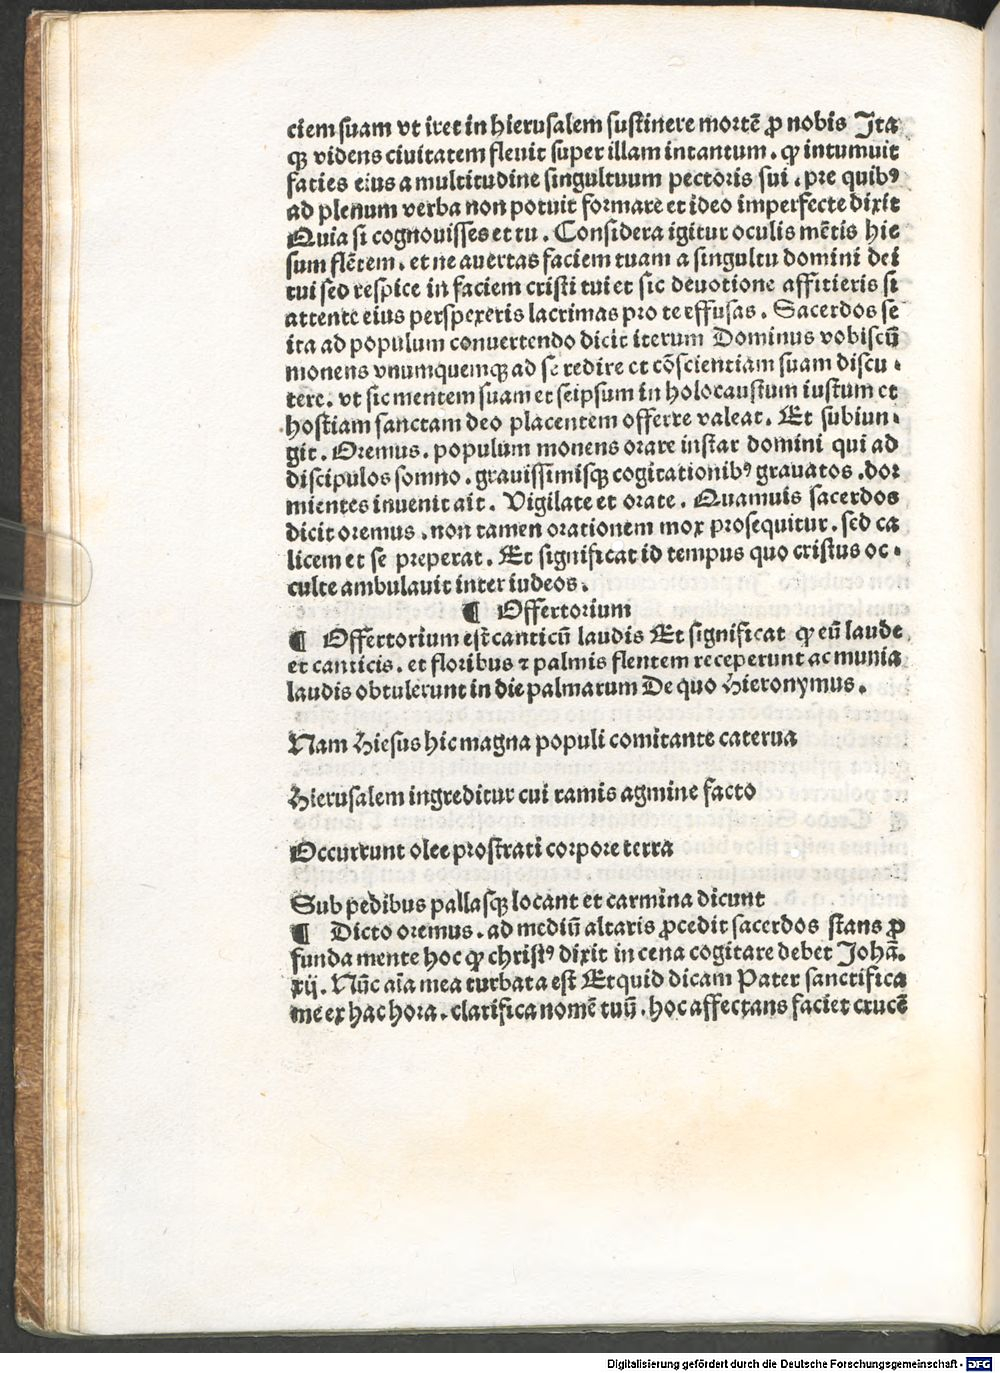 ciem suam vt iret in hierusalem sustinere mortē ꝓ nobis Ita
qꝫ videns ciuitatem fleuit super illam intantum . ꝙ intumuit
faties eius a multitudine singultuum pectoris sui . pre quibꝰ
ad plenum verba non potuit formare et ideo imperfecte dixit
Quia si cognouisses et tu . Considera igitur oculis mētis hie
sum flētem . et ne auertas faciem tuam a singultu domini dei
tui sed respice in faciem cristi tui et sic deuotione affitieris si
attente eius perspexeris lacrimas pro te effusas . Sacerdos se
ita ad populum conuertendo dicit iterum Dominus vobiscū
monens vnumquemqꝫ ad se redire et cōscientiam suam discu .
tere . vt sic mentem suam et seipsum in holocaustum iustum et
hostiam sanctam deo placentem offerre valeat . Et subiun .
git . Oremus . populum monens orare instar domini qui ad
discipulos somno . grauissimisqꝫ cogitationibꝰ grauatos . dor
mientes inuenit ait . Vigilate et orate . Quamuis sacerdos
dicit oremus . non tamen orationem mox prosequitur . sed ca
licem et se preperat . Et significat id tempus quo cristus oc .
culte ambulauit inter iudeos .
¶ Offertorium
¶ Offertorium est canticū laudis Et significat ꝙ eū laude
et canticis . et floribus ⁊ palmis flentem receperunt ac munia
laudis obtulerunt in die palmarum De quo Hieronymus .
Nam Hiesus hic magna populi comitante caterua
Hierusalem ingreditur cui ramis agmine facto
Occurrunt olee prostrati corpore terra
Sub pedibus pallasqꝫ locant et carmina dicunt
¶ Dicto oremus . ad mediū altaris ꝓcedit sacerdos stans ꝓ
funda mente hoc ꝙ christꝰ dixit in cena cogitare debet Johā.
xij . Nūc aīa mea turbata est Et quid dicam Pater sanctifica
me ex hac hora . clarifica nomē tuū . hoc affectans faciet crucē
Digitalisierung gefördert durch die Deutsche Forschungsgemeinschaft - DFG